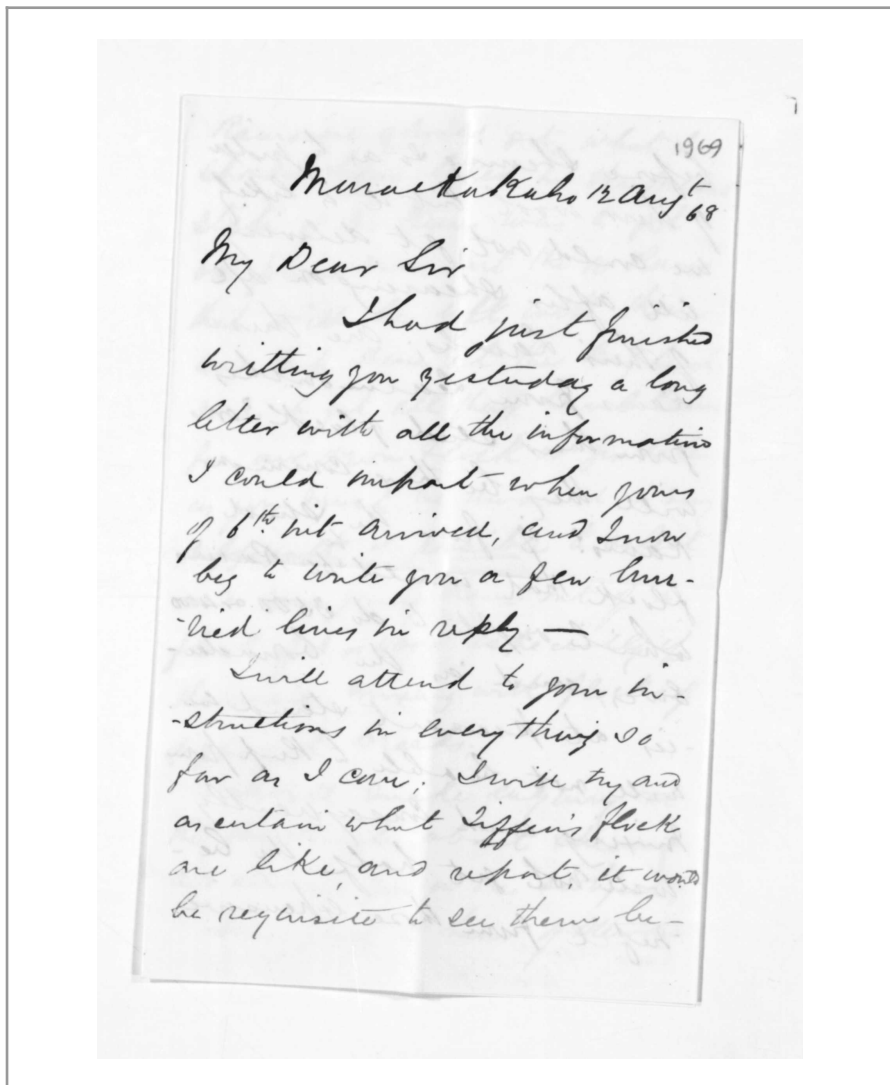 1969
Maraekakaho 12 Augt
68
My Dear Sir
I had just finished
writting you yesterday a long
letter with all the information
I could impart when yours
of 6th int arrived, and I now
beg to write you a few hur-
-ried lines in reply —
I will attend to your in-
-structions in everything so
far as I can; I will try and
ascertain what Tiffen's flock
are like, and report, it would
be requisite to see them be-